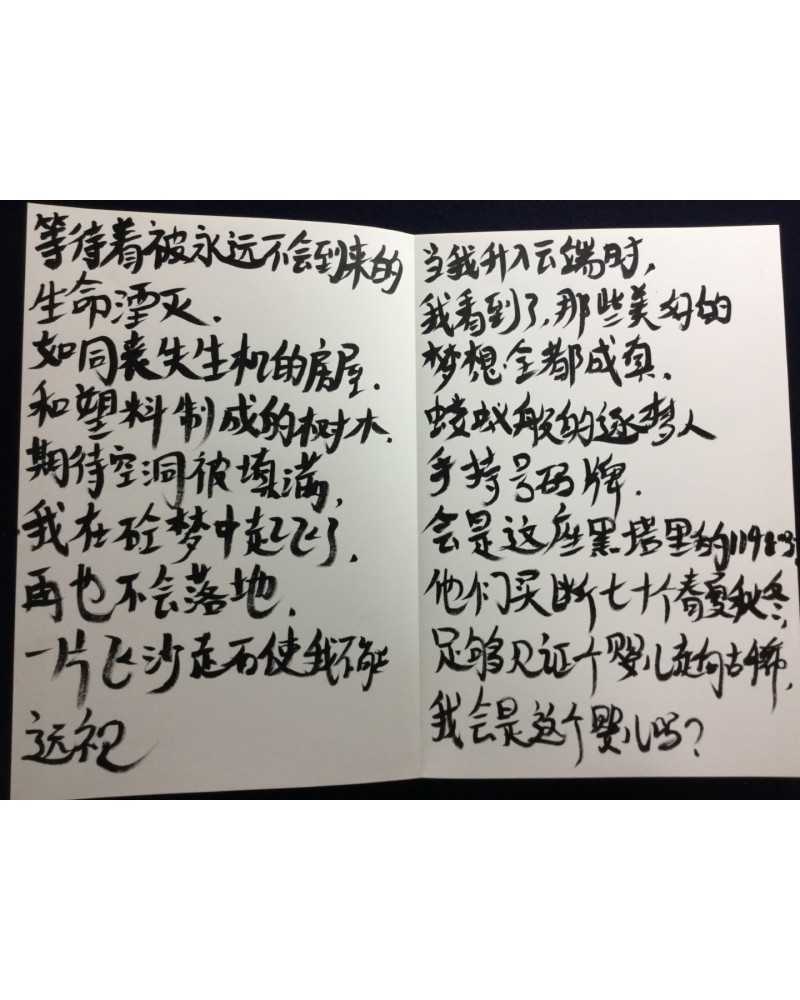 等待着被永远不会到来的
生命湮灭.
如同丧失生机的房屋.
和塑料制成的树木.
期待空洞被填满,
我在砼梦中起飞了,
再也不会落地.
一片飞沙走石使我不能
远视
当我升入云端时,
我看到了,那些美好的
梦想全都成真.
蝼蚁般的逐梦人
手持号码牌.
会是这座黑塔里的1198号
他们买断七十个春夏秋冬,
足够见证个婴儿走向古稀,
我会是这个婴儿吗?